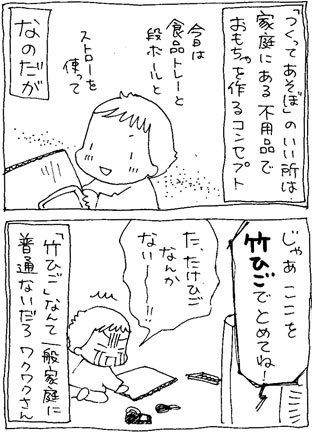 「つくってあそぼ」のいい所は
家庭にある不用品で
おもちゃを作るコンセプト
今日は
食品トレーと
段ボールと
ストローを
使って
なのだが
じゃあ ここを
竹ひごでとめてね!
た、たけひご
なんか
ないー!!
「竹ひご」なんて一般家庭に
普通ないだろ ワクワクさん